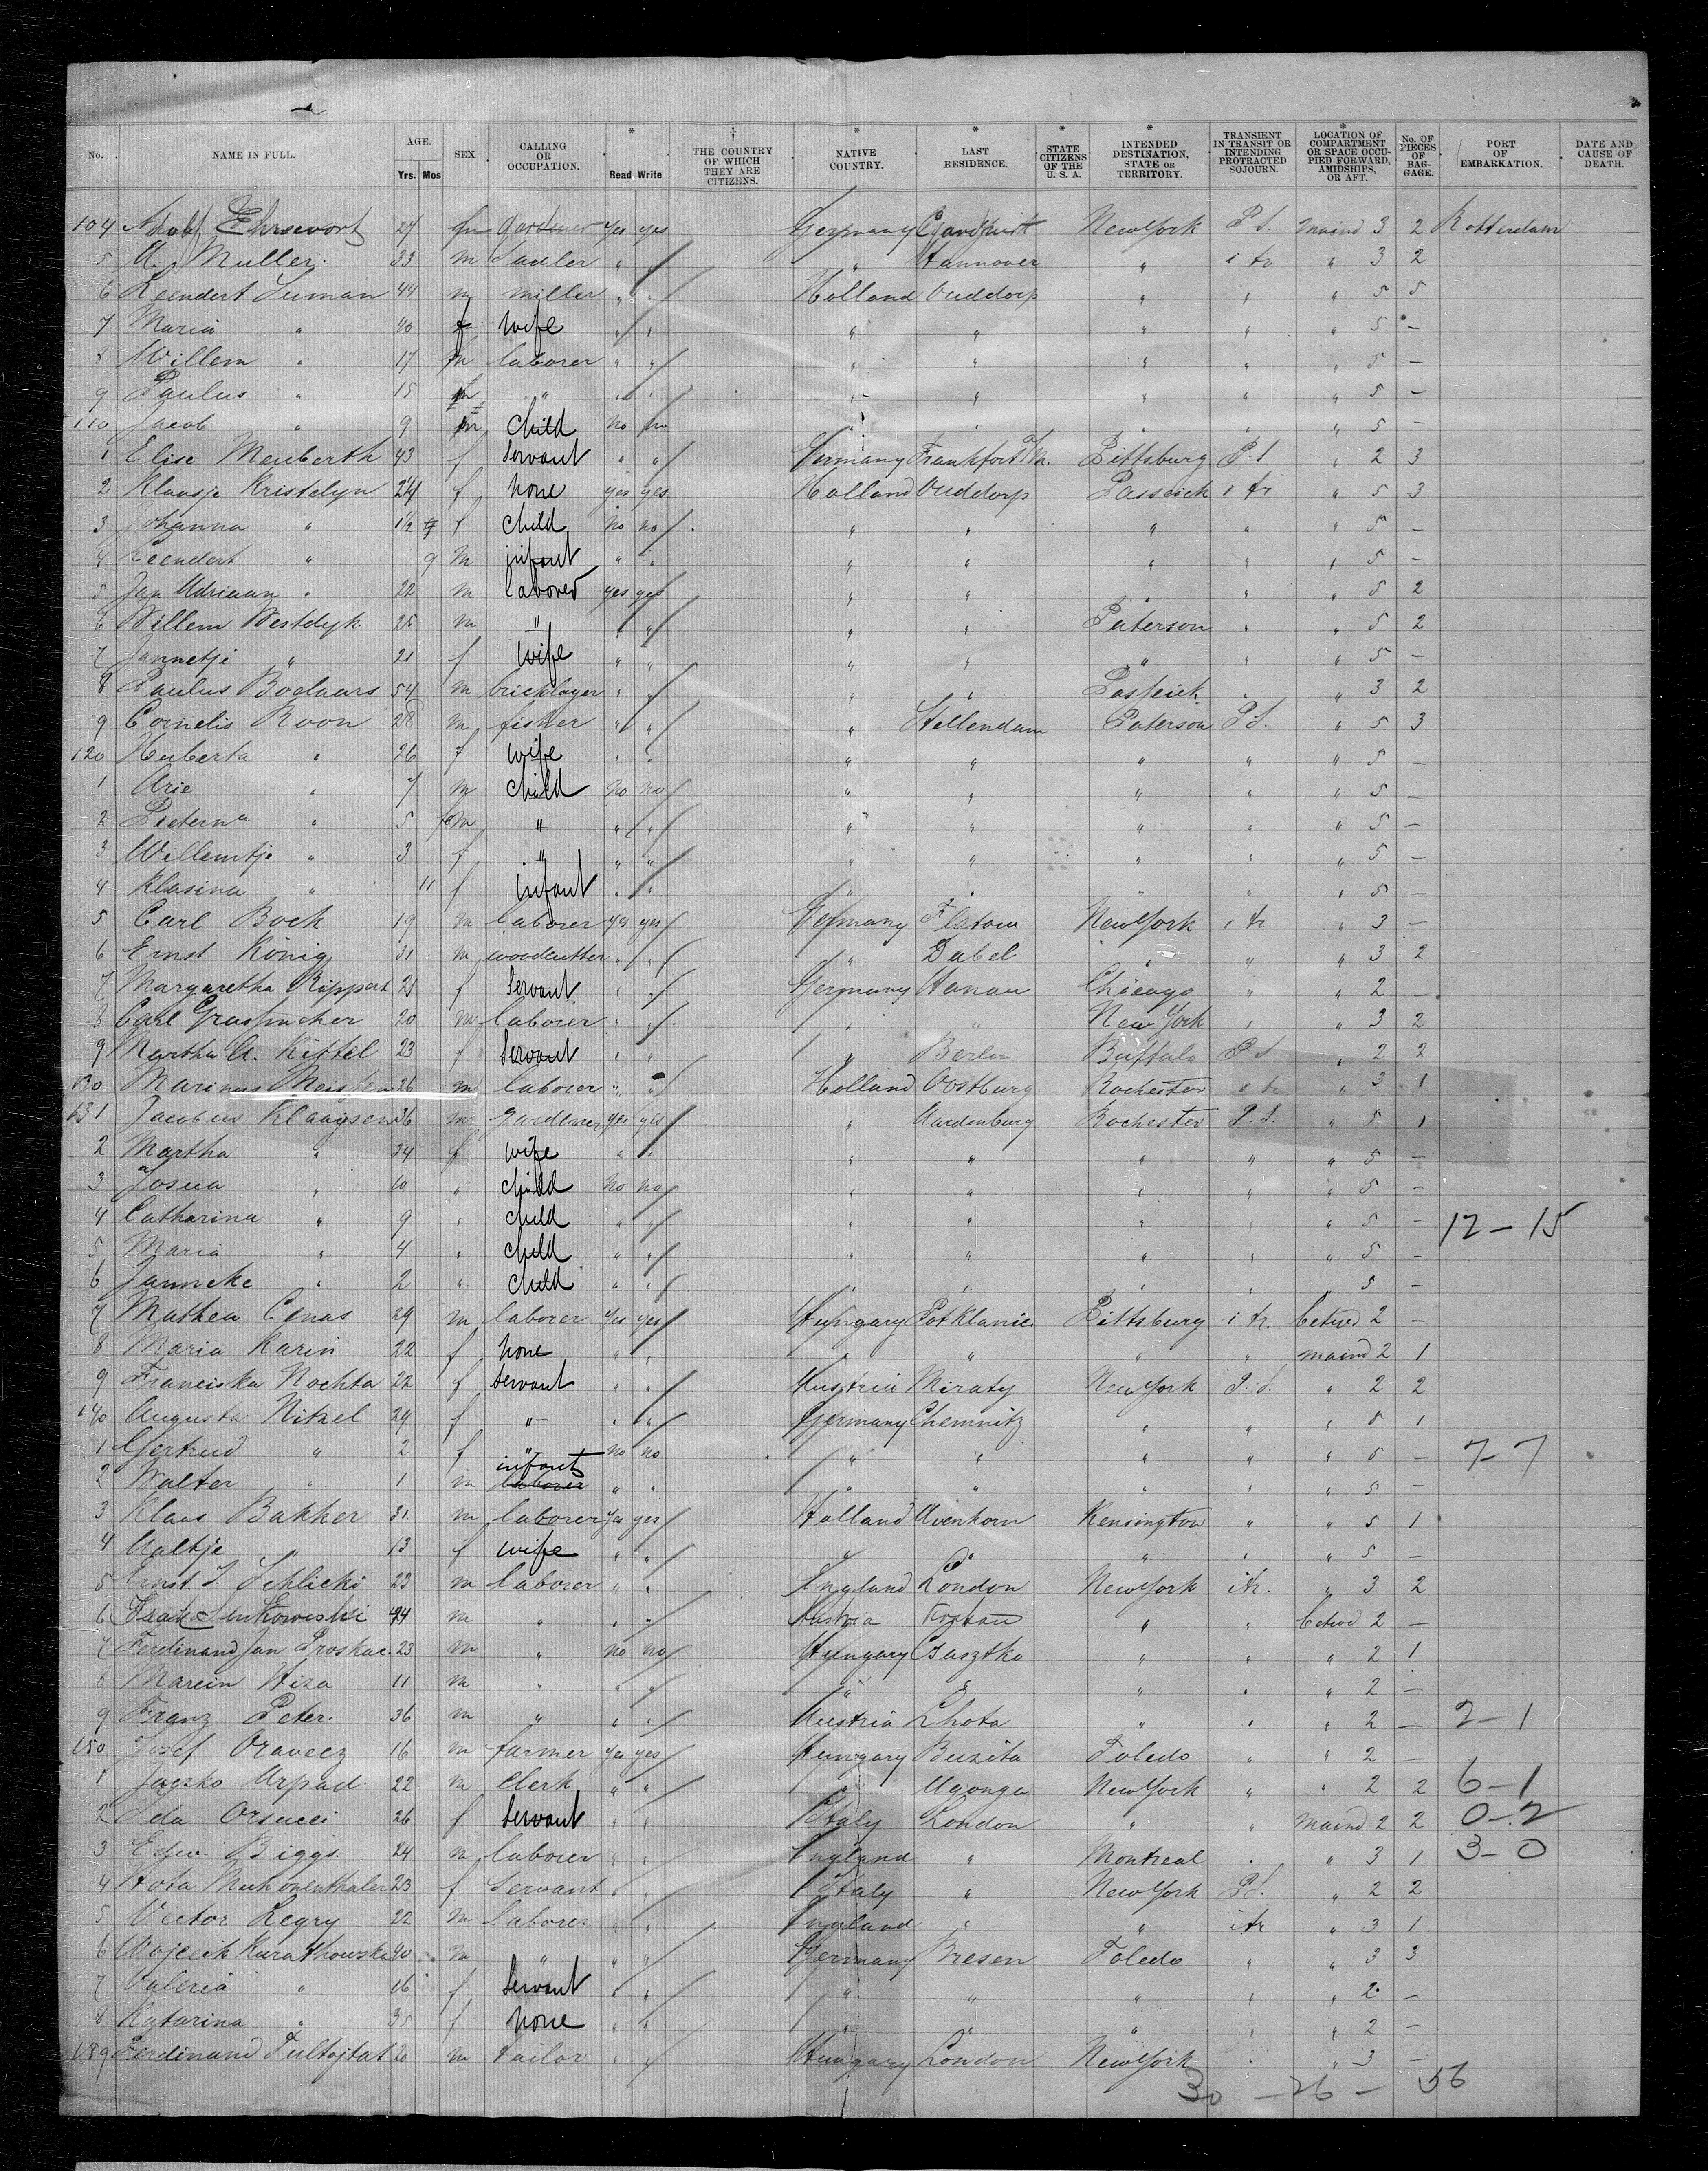 No. NAME IN FULL. AGE. Yrs. Mos SEX CALLING OR OCCUPATION. Read Write THE COUNTRY OF WHICH THEY ARE CITIZENS. NATIVE COUNTRY. LAST RESIDENCE. STATE CITIZENS OF THE U. S. A. INTENDED DESTINATION, STATE OR TERRITORY. TRANSIENT IN TRANSIT OR INTENDING PROTRACTED SOJOURN. LOCATION OF COMPARTMENT OR SPACE OCCUPIED FORWARD, AMIDSHIPS, OR AFT. No. OF PIECES OF BAGGAGE. PORT OF EMBARKATION. DATE AND CAUSE OF DEATH.
104 Adolf 27 m yes yes Germany New York P S. maind 3 2 Rotterdam
5 A. Muller. 33 m " " " Hannover " i tr " 3 2
6 Leendert Suman 44 m miller " " Holland Ouddorp " " " 5 5
7 Maria " 40 f wife " " " " " " " 5 –
8 Willem " 17 m laborer " " " " " " " 5 –
9 Paulus " 15 m " " " " " " " " 5 –
110 Jacob " 9 m child no no " " " " " 5 –
1 Elise Meuberth 43 f servant " " Germany Frankfort a/M. Pittsburg P.S " 2 3
2 Klaasje Kristelyn 24 f none yes yes Holland Ouddorp Passeick i tr " 5 3
3 Johanna " 1½ f child no no " " " " " 5 –
4 Leendert " 9 m infant " " " " " " " 5 –
5 Jan Adriaan " 22 m laborer yes yes " " " " " 5 2
6 Willem Westdyk 25 m " " " " " Paterson " " 5 2
7 Jannetje " 21 f wife " " " " " " " 5 –
8 Paulus Bodaars 54 m bricklayer " " " " " " 3 2
9 Cornelis Roon 28 m fisher " " " Stellendam Paterson P S. " 5 3
120 Huberta " 26 f wife " " " " " " " 5 –
1 Arie " 7 m child no no " " " " " 5 –
2 Pieterna " 5 m " " " " " " " " 5 –
3 Willemtje " 3 f " " " " " " " " 5 –
4 Klasina " 11 f infant " " " " " " " 5 –
5 Carl Bock 19 m laborer yes yes Germany Flatow New York i tr " 3 –
6 Ernst König 31 m woodcutter " " " Dabel " " " 3 2
7 Margaretha Rippert 21 f servant " " Germany Hanau Chicago " " 2 –
8 Carl 20 m laborer " " " " New York " " 3 2
9 Martha A. Kittel 23 f servant " " " Berlin Buffalo P S " 2 2
130 Marinus 26 m laborer " " Holland Oostburg Rochester i tr " 3 1
131 Jacobus Klaaysen 36 m gardener yes yes " Aardenburg Rochester P.S. " 5 1
2 Martha " 34 f wife " " " " " " " 5 –
3 Josua " 10 " child no no " " " " " 5 –
4 Catharina " 9 " child " " " " " " " 5 – 12–15
5 Maria " 4 " child " " " " " " " 5 –
6 Janneke " 2 " child " " " " " " " 5 –
7 Mathea Cenas 29 m laborer yes yes Hungary Potklanie Pittsburg i tr. betwd 2 –
8 Maria Karin 22 f none " " " " " " maind 2 1
9 Franciska Nochta 22 f servant " " Austria Miraty New York P.S. " 2 2
140 Augusta Nitzel 29 f " " " Germany Chemnitz " " " 5 1
1 Gertrud " 2 f " no no " " " " " 5 – 7–7
2 Walter " 1 m infant laborer " " " " " " " 5 –
3 Klaas Bakker 31 m laborer yes yes Holland Avenhorn Kensington " " 5 1
4 Aaltje " 13 f wife " " " " " " " 5 –
5 Ernst J. Schlicki 23 m laborer " " England London New York i tr. " 3 2
6 44 m " " " Austria " " betwd 2 –
7 Ferdinand Jan 23 m " no no Hungary " " " 2 1
8 Marcin Hiza 11 m " " " " " " " " 2 –
9 Franz Peter. 36 m " " " Austria Lhota " " " 2 – 2–1
150 Josef Oravecz 16 m farmer yes yes Hungary Buzita Toledo " " 2 –
1 Jaszko Arpad. 22 m clerk " " " New York " " 2 2 6–1
2 Ida Orsucci 26 f servant " " Italy London " " maind 2 2 0–2
3 Edw. Biggs. 24 m laborer " " England " Montreal " " 3 1 3–0
4 23 f servant " " Italy " New York P S. " 2 2
5 Vector Legry 22 m laborer " " England " " i tr " 3 1
6 40 m " " " Germany Bresen Toledo " " 3 3
7 Valeria " 16 f servant " " " " " " " 2 –
8 Katarina " 35 f none " " " " " " " 2 –
159 Ferdinand 20 m tailor " " Hungary London New York " " 3 –
30 – 26 – 56